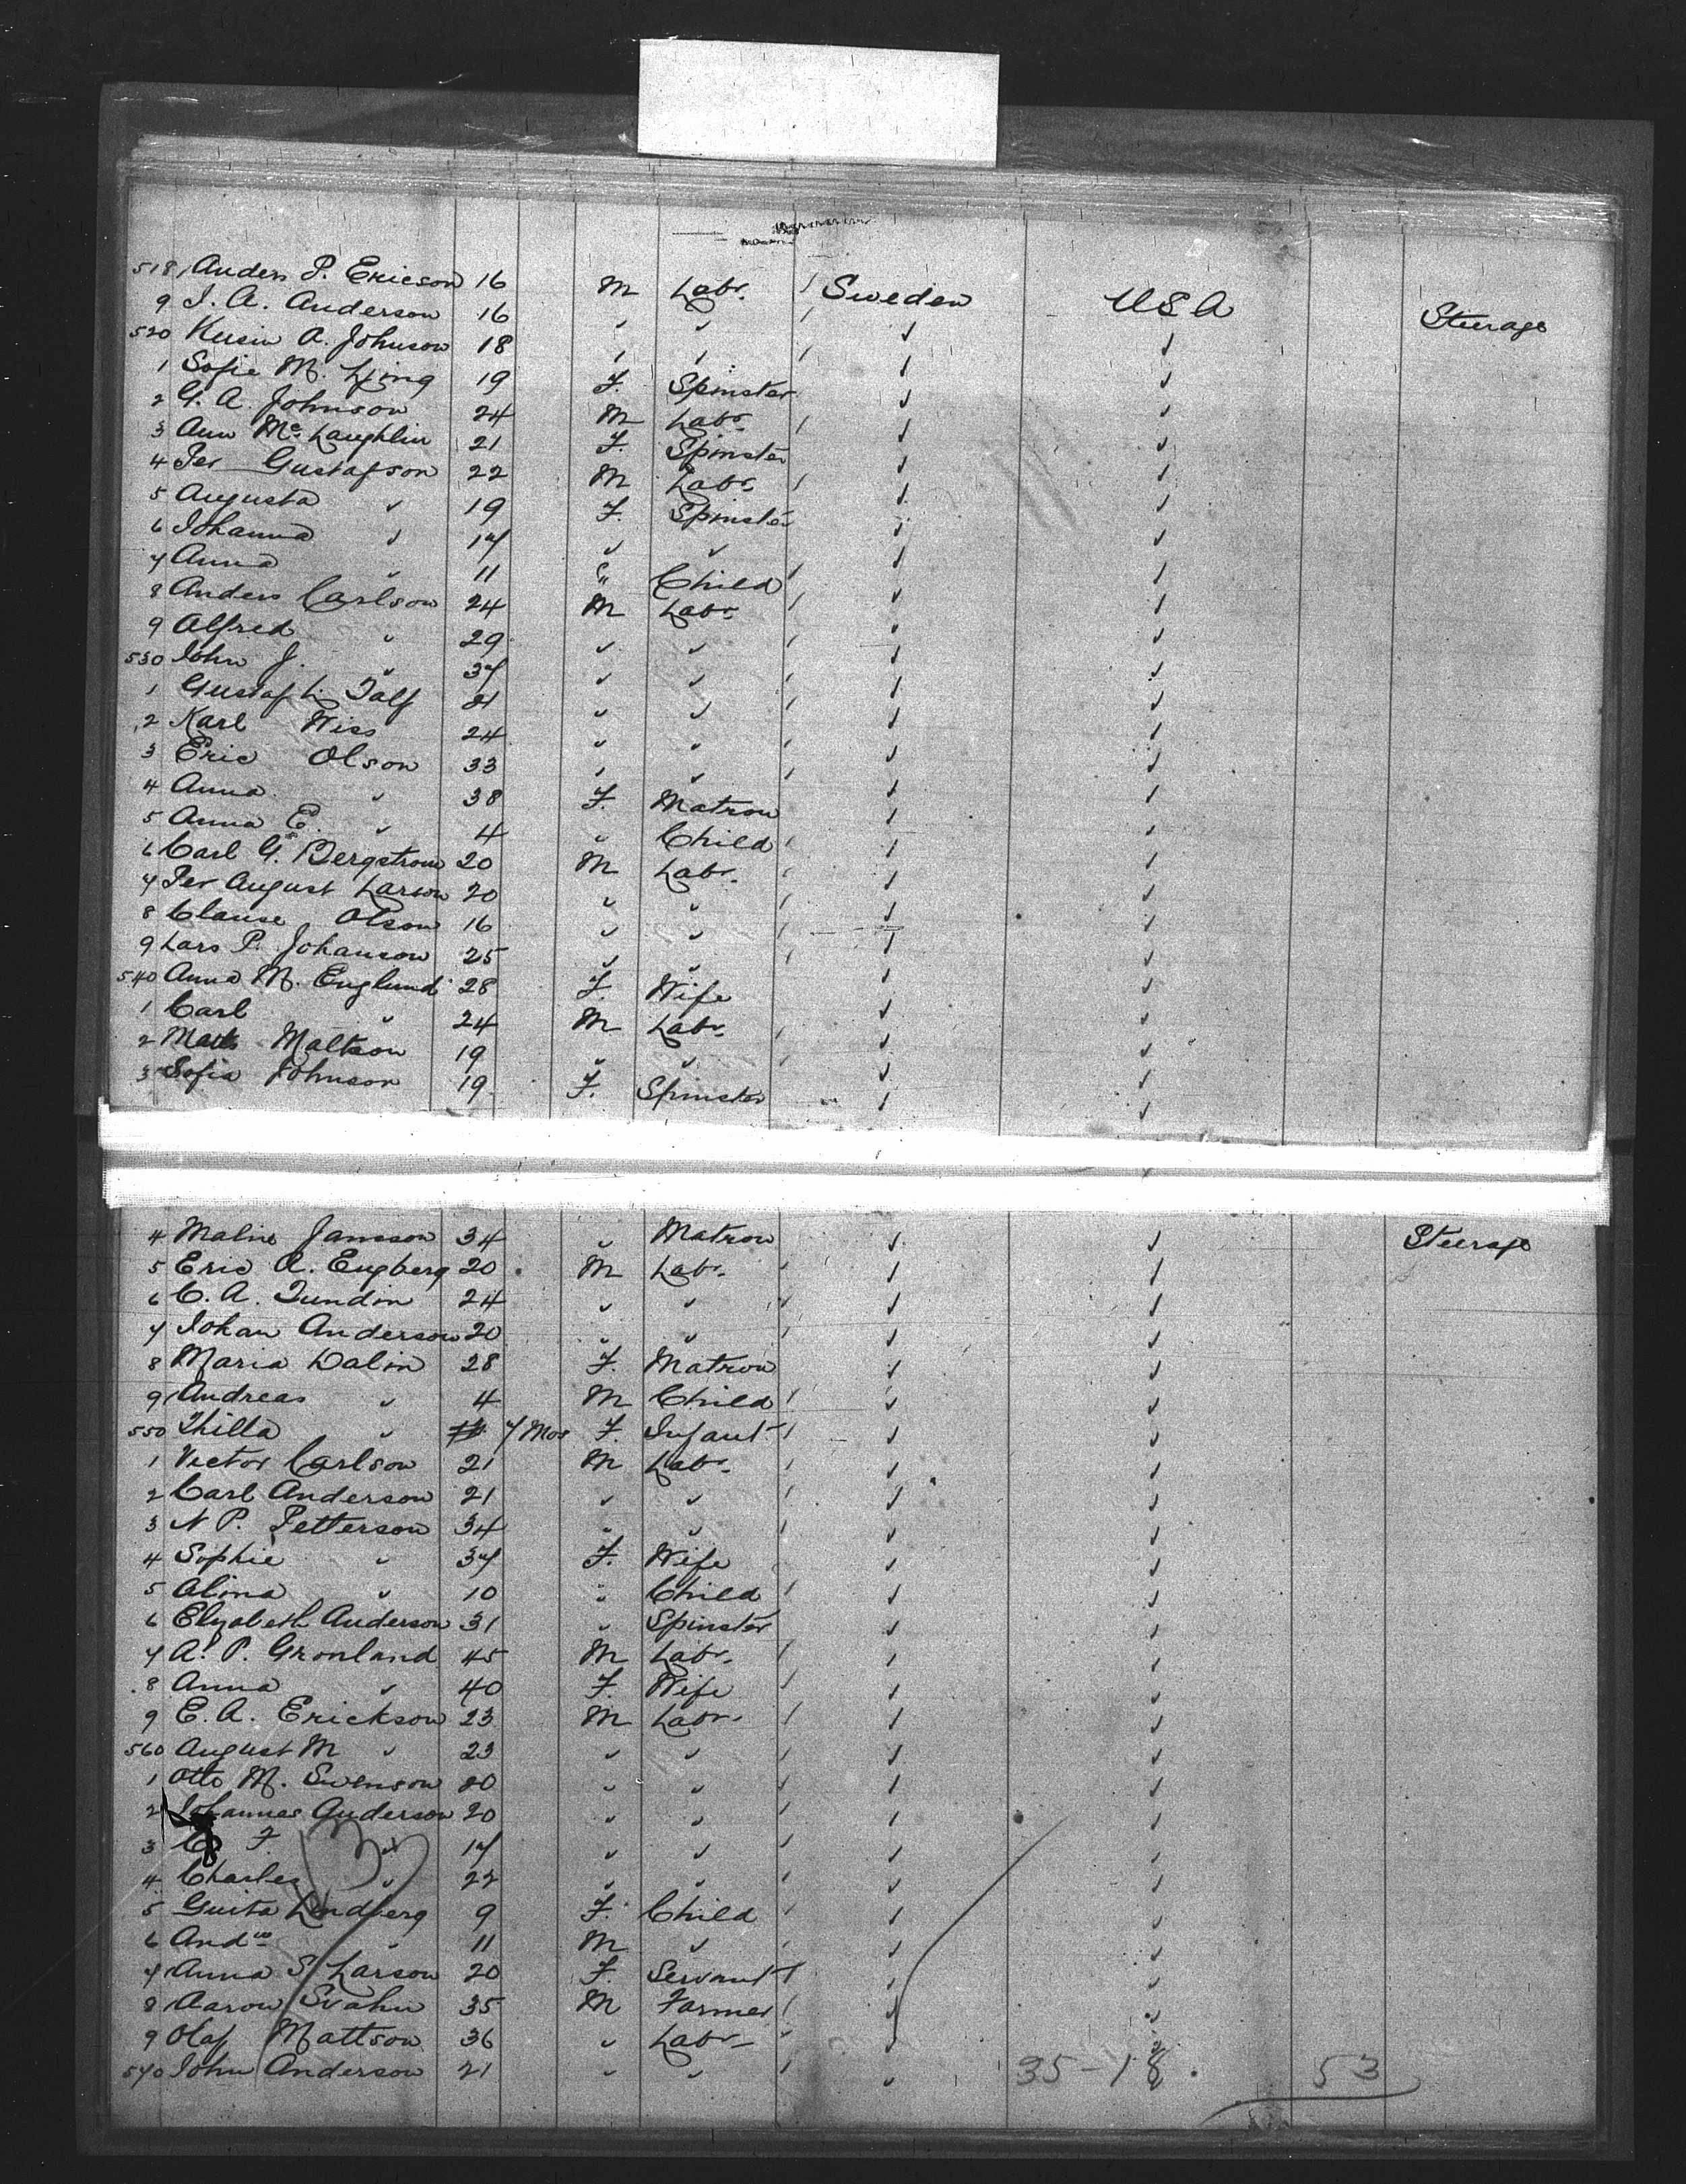 518 Anders P. Ericson 16 M Labr. Sweden USA Steerage
9 J. A. Anderson 16 " "
520 A. Johnson 18 " "
1 Sofie M. Ljing 19 F. Spinster
2 G. A. Johnson 24 M Labr.
3 Ann McLaughlin 21 F. Spinster
4 Per Gustafson 22 M Labr.
5 Augusta " 19 F. Spinster
6 Johanna " 17 " "
7 Anna " 11 " Child
8 Anders Carlson 24 M Labr.
9 Alfred " 29 " "
530 John J. " 37 " "
1 Gustaf L. 21 " "
2 Karl Wiss 24 " "
3 Eric Olson 33 " "
4 Anna " 38 F. Matron
5 Anna E. " 4 " Child
6 Carl G. Bergstrom 20 M Labr.
7 Per August Larson 20 " "
8 Clause Olson 16 " "
9 Lars P. Johanson 25 " "
540 Anna M. Englund 28 F. Wife
1 Carl " 24 M Labr.
2 Mats Maltson 19 " "
3 Sofia Johnson 19 F. Spinster
4 Malin Jansson 34 " Matron Steerage
5 Eric A. Engberg 20 M Labr.
6 C. A. Lundin 24 " "
7 Johan Anderson 20 " "
8 Maria Dalin 28 F. Matron
9 Andreas " 4 M Child
550 Thilla " 7 Mos F. Infant
1 Victor Carlson 21 M Labr.
2 Carl Anderson 21 " "
3 N P. Petterson 34 " "
4 Sophie " 37 F. Wife
5 Alina " 10 " Child
6 Elizabeth Anderson 31 " Spinster
7 A. P. Gronland 45 M Labr.
8 Anna " 40 F. Wife
9 E. A. Erickson 23 M Labr.
560 August M " 23 " "
1 Otto M. Swenson 20 " "
2 Johannes Anderson 20 " "
3 C. F. " 17 " "
4 Charles " 22 " "
5 Guita Lindberg 9 F. Child
6 And " 11 M "
7 Anna S. Larson 20 F. Servant
8 Aaron Svahn 35 M Farmer
9 Olaf Mattson 36 " Labr
570 John Anderson 21 " " 35-18. 53